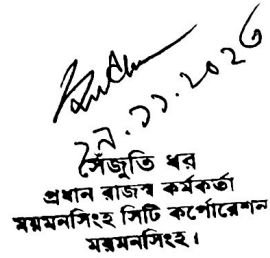 ২০.১১.২০২৩
সেঁজুতি ধর
প্রধান রাজস্ব কর্মকর্তা
ময়মনসিংহ সিটি কর্পোরেশন
ময়মনসিংহ।